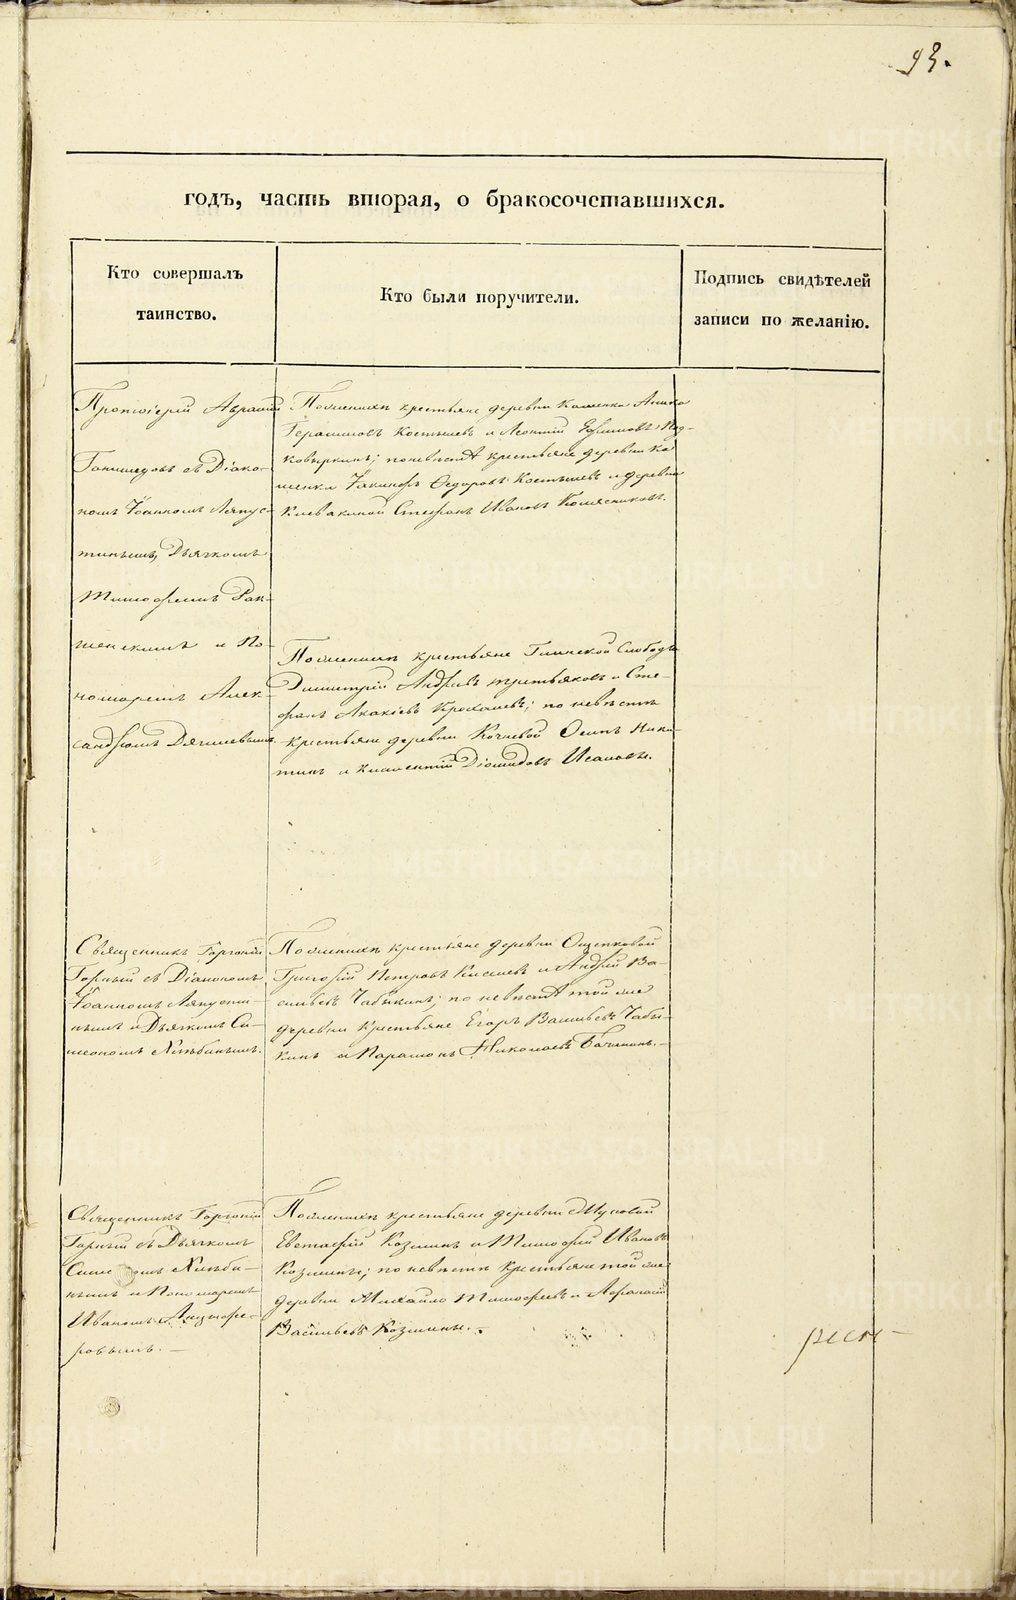 93.
годъ, часть вторая, о бракосочетавшихся.
Кто совершалъ
таинство.
Кто были поручители.
Подпись свидѣтелей
записи по желанію.
Протоіерей Авраамій
съ Діако-
номъ Іоанномъ Ляпус-
тинымъ, Дьячкомъ
Тимофеемъ
и По-
номаремъ Алек-
сандромъ Дягилевымъ.
По женихѣ крестьяне деревни Каменки
Герасимовъ Костылевъ и Леонтій
по невѣстѣ крестьяне деревни Ка
менки Ѳедоровъ Костылевъ и деревни
Клевакиной Стефанъ Ивановъ
По женихѣ крестьяне Глинской Слободы
Димитрій Андреевъ Третьяковъ и Сте-
фанъ Акакіевъ по невѣстѣ
крестьяне деревни Кочневой Осипъ Ники-
тинъ и Климентій Діомидовъ Исаковы.
Священникъ Горгоній
Горный съ Діакономъ
Іоанномъ Ляпусти-
нымъ и Дьячкомъ Си-
меономъ Хлѣбинымъ.
По женихѣ крестьяне деревни Ощепковой
Григорій Петровъ Киселевъ и Андрей Ва-
сильевъ Чабыкинъ; по невѣстѣ той же
деревни крестьяне Егоръ Васильевъ Чабы-
кинъ и Парамонъ Николаевъ
Священникъ Горгоній
Горный съ Дьячкомъ
Хлѣби-
нымъ и Пономаремъ
Иваномъ
По женихѣ крестьяне деревни
Евстафій Козминъ и Тимофей Ивановъ
Козмины; по невѣстѣ крестьяне той же
деревни Михайло Тимофеевъ и
Васильевъ Козмины.